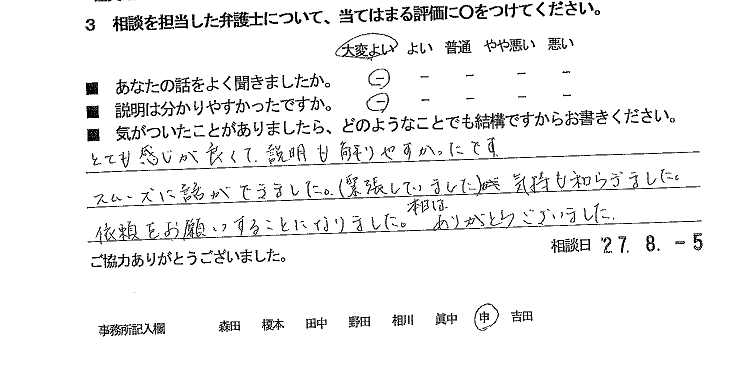 3 相談を担当した弁護士について、当てはまる評価に〇をつけてください。
大変よい よい 普通 やや悪い 悪い
■ あなたの話をよく聞きましたか。 － － － － －
■ 説明は分かりやすかったですか。 － － － － －
■ 気がついたことがありましたら、どのようなことでも結構ですからお書きください。
とても感じが良くて、説明も解りやすかったです
スムーズに話ができました。(緊張していました)が 気持も和らぎました。
依頼をお願いすることになりました。本日は ありがとうございました。
ご協力ありがとうございました。
相談日 '27. 8. -5
事務所記入欄 森田 榎本 田中 野田 相川 眞中 申 吉田